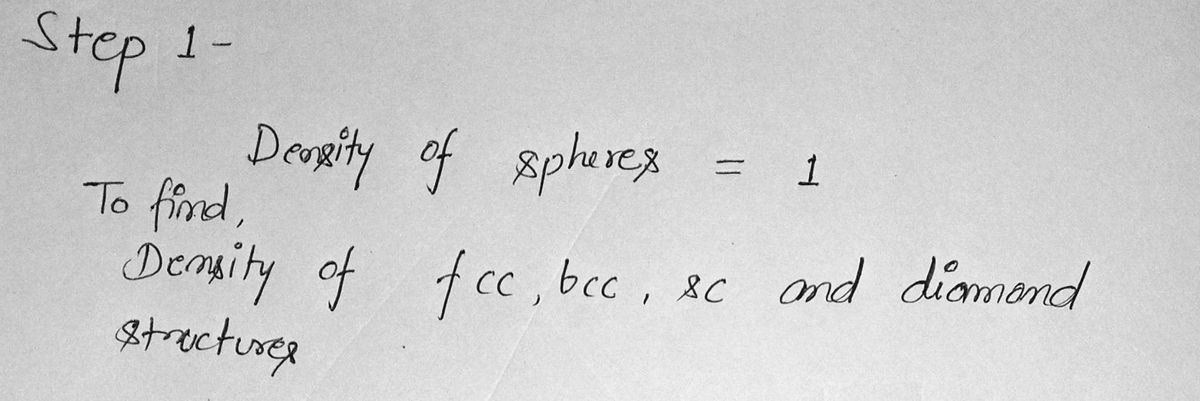 Step 1-
Density of spheres = 1
To find,
Density of fcc, bcc, sc and diamond
structures